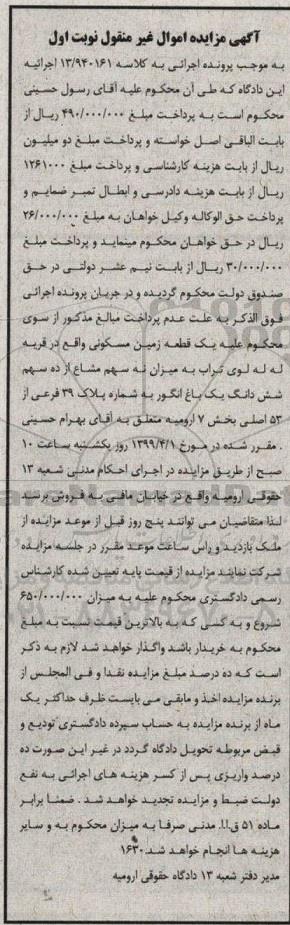 آگهی مزایده اموال غیر منقول نوبت اول
به موجب پرونده اجرائی به کلاسه ۱۳/۹۴۰۱۶۱ اجرائیه
این دادگاه که طی آن محکوم علیه آقای رسول حسینی
محکوم است به پرداخت مبلغ ۴۹۰/۰۰۰/۰۰۰ ریال از
بابت الباقی اصل خواسته و پرداخت مبلغ دو میلیون
ریال از بابت هزینه کارشناسی و پرداخت مبلغ ۱۲۶۱۰۰۰
ریال از بابت هزینه دادرسی و ابطال تمبر ضمایم و
پرداخت حق الوکاله وکیل خواهان به مبلغ ۲۶/۰۰۰/۰۰۰
ریال در حق خواهان محکوم مینماید و پرداخت مبلغ
۳۰/۰۰۰/۰۰۰ ریال از بابت نیم عشر دولتی در حق
صندوق دولت محکوم گردیده و در جریان پرونده اجرائی
فوق الذکر به علت عدم پرداخت مبالغ مذکور از سوی
محکوم علیه یک قطعه زمین مسکونی واقع در قریه
له له لوی تراب به میزان نه سهم مشاع از ده سهم
شش دانگ یک باغ انگور به شماره پلاک ۳۹ فرعی از
۵۳ اصلی بخش ۷ ارومیه متعلق به آقای بهرام حسینی
. مقرر شده در مورخ ۱۳۹۹/۴/۱ روز یکشنبه ساعت ۱۰
صبح از طریق مزایده در اجرای احکام مدنی شعبه ۱۳
حقوقی ارومیه واقع در خیابان مافی به فروش برسد
لذا متقاضیان می توانند پنج روز قبل از موعد مزایده از
ملک بازدید و راس ساعت موعد مقرر در جلسه مزایده
شرکت نمایند مزایده از قیمت پایه تعیین شده کارشناس
رسمی دادگستری محکوم علیه به میزان ۶۵۰/۰۰۰/۰۰۰
شروع و به کسی که به بالاترین قیمت نسبت به مبلغ
محکوم به خریدار باشد واگذار خواهد شد لازم به ذکر
است که ده درصد مبلغ مزایده نقدا و فی المجلس از
برنده مزایده اخذ و مابقی می بایست ظرف حداکثر یک
ماه از برنده مزایده به حساب سپرده دادگستری تودیع و
قبض مربوطه تحویل دادگاه گردد در غیر این صورت ده
درصد واریزی پس از کسر هزینه های اجرائی به نفع
دولت ضبط و مزایده تجدید خواهد شد . ضمنا برابر
ماده ۵۱ ق.ا.ا. مدنی صرفا به میزان محکوم به و سایر
هزینه ها انجام خواهد شد. ۱۶۳۰
مدیر دفتر شعبه ۱۳ دادگاه حقوقی ارومیه